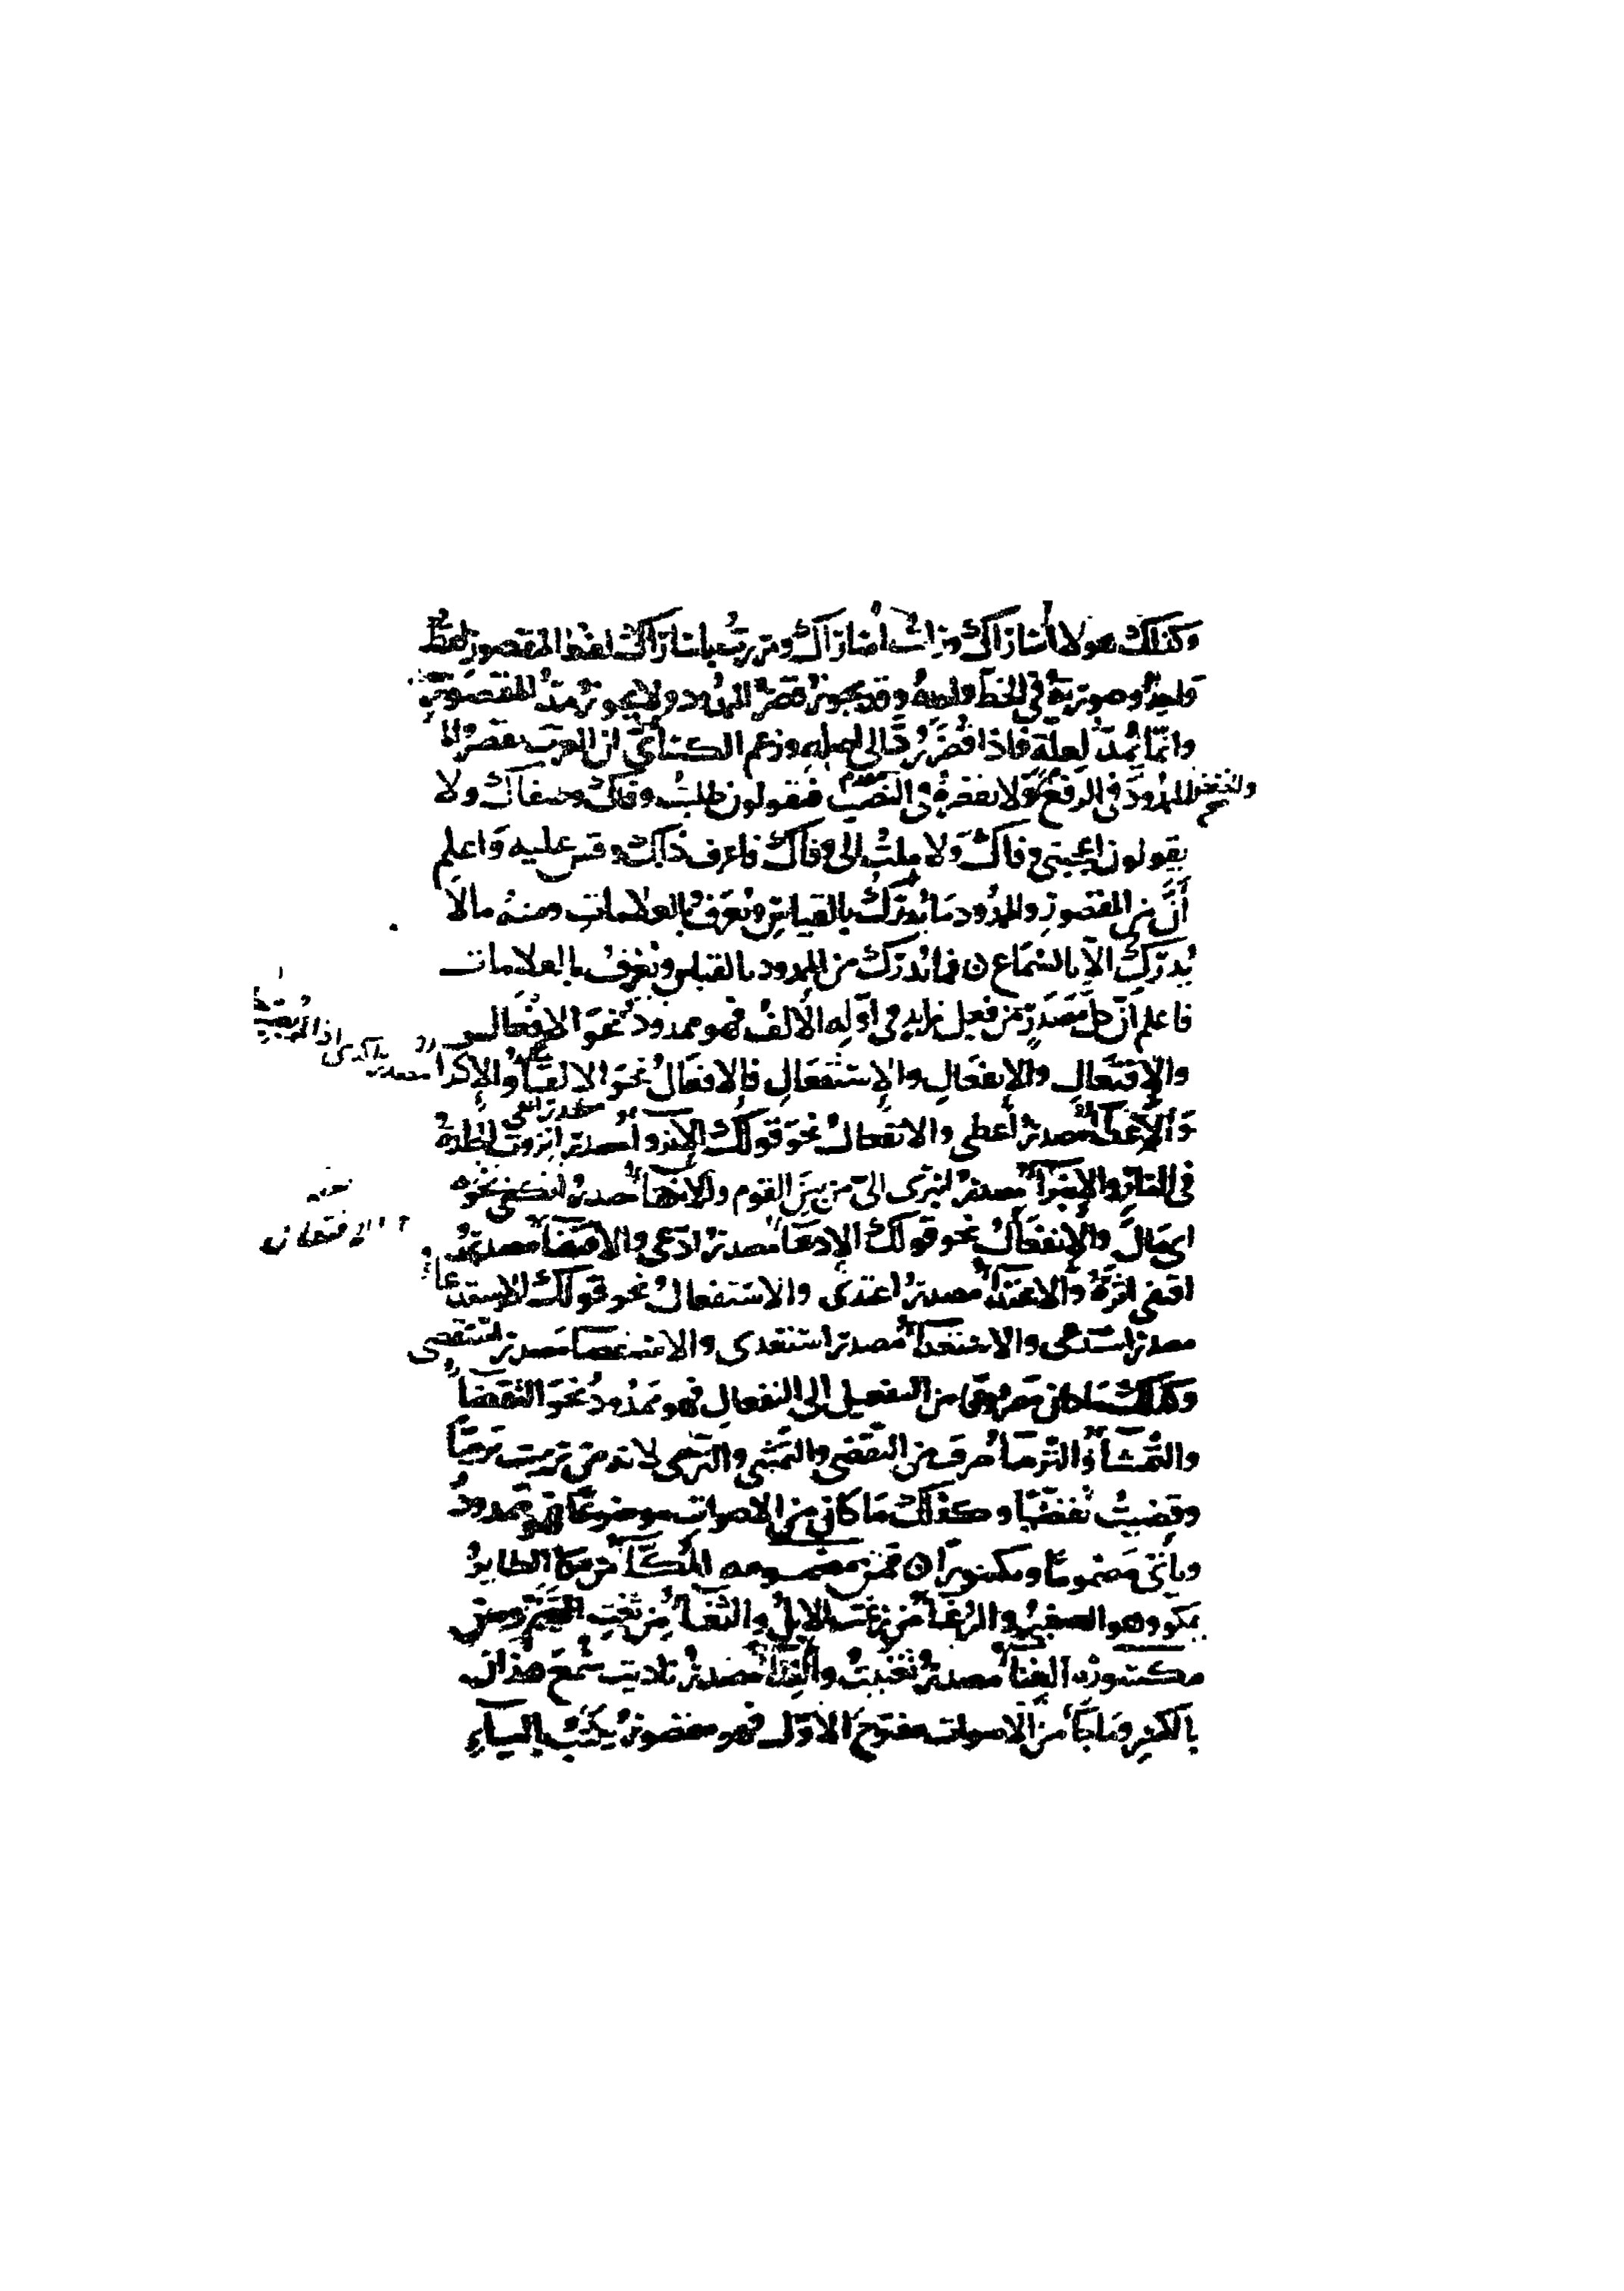 وكذلك هولا اسارَاك ورات اسارَاك ومررت باسارَاك لفظ المقصور لفظ
واحدٌ وصورته في الخط واحدة وقد يجوز قصرُ الممدود ولا يجوز مدُّ المقصور
وانما يُمدّ لعلّة فاذا قُصِرَ رُدَّ الى اصله وزعم الكسائي ان العرب تقصرُ
الممدود في الرفع ولا تقصره في النصب فيقولون طلبتُ وفاك ولا
والخفض
يقولون اعجبني وفاك ولا ملتُ الى وفاك فاعرف ذلك وقس عليه واعلم
أنّ من المقصور والممدود ما يُدرَك بالقياس ويُعرَف بالعلامات ومنه ما لا
يُدرَك الّا بالسّماع فما يُدرَك من الممدود بالقياس ويُعرف بالعلامات
فاعلم أنّ كلّ مصدرٍ من فعل زايد في اوّله الالف فهو ممدود نحو الافعال
والافتعال والانفعال والاستفعال فالافعالُ نحو الالقاء والاكراء
والاعطاء مصدر أعطى والانفعال نحو قولك الانزواء مصدر انزوت الجلدة
في النار والانبراء مصدر انبرى اليّ من بين القوم
والافتعال نحو قولك الادعاء مصدر ادّعى والاقتفاء مصدر
الافتعال
اقتفى اثره والاعتداء مصدر اعتدى والاستفعال نحو قولك الاستدعاء
مصدر استدعى والاستعداء مصدر استعدى والاستقصاء مصدر استقصى
وكذلك ما كان مصروفا من التفعيل الى التفعال فهو ممدود نحو التقضاء
والتمشاء والترماء صرف من التقضي والتمشي والترمي لانه من ترميت ترميًا
وقضيت تقضيًا وكذلك ما كان من الاصوات موضوعًا فهو ممدود
وياتي مضمومًا ومكسورًا فمن مضمومه المُكاء من مكا الطاير
يمكو وهو الصفير والرُّغاء من رغت الابل والثّغاء من ثغت الغنم ومن
مكسوره الغناء مصدر تغنيت والنداء مصدر ناديت سُمع هذان
بالكسر وما جاء من الاصوات مفتوح الاوّل فهو مقصور يكتب بالياء